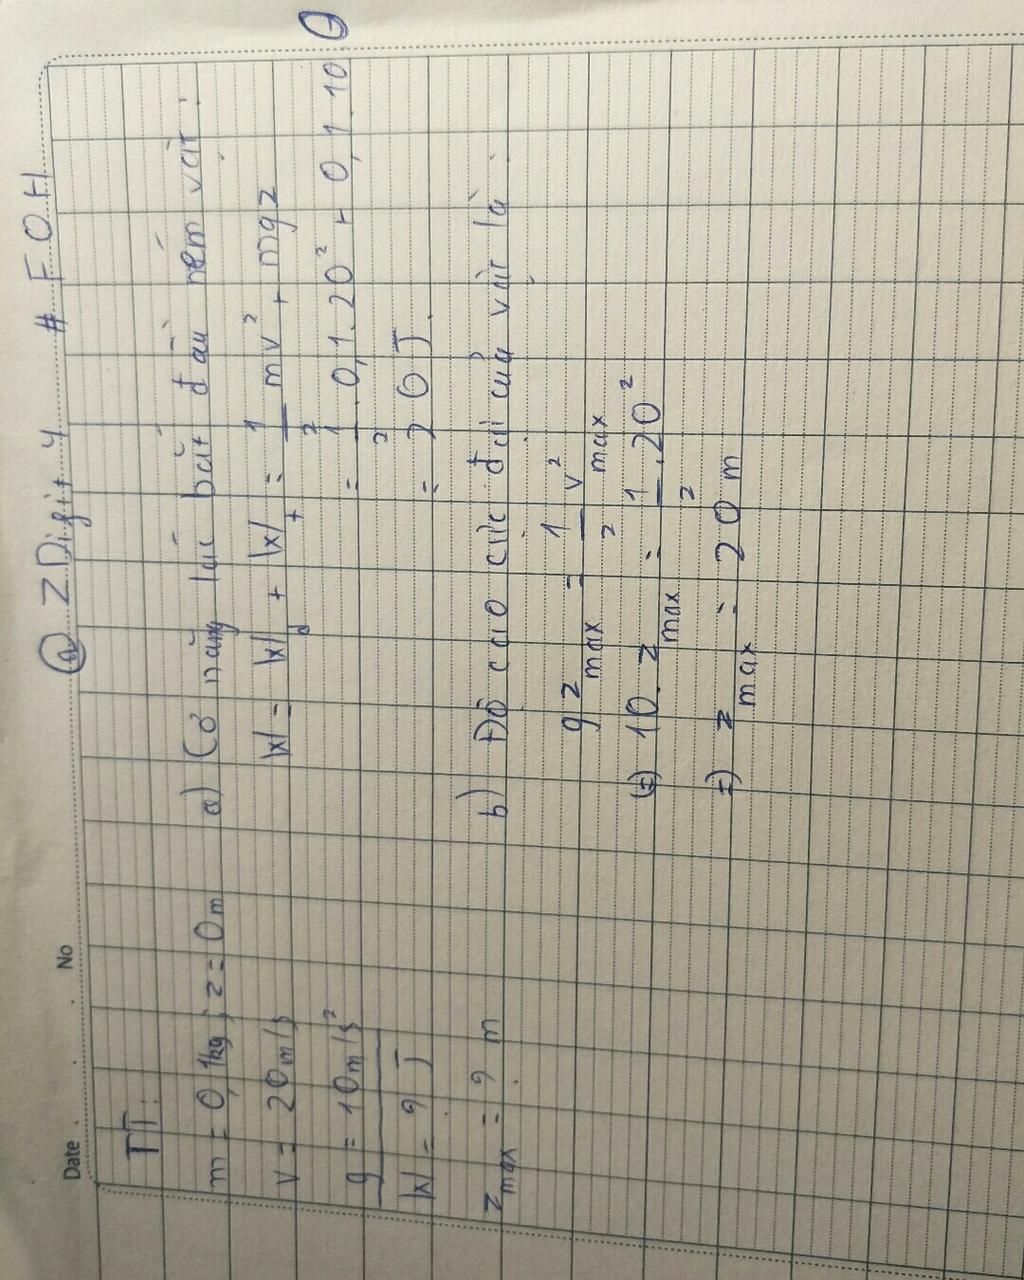 @ZDigit4 # F.O.H
Date No
TT:
m = 0,1kg ; z = 0m
v = 20m/s
g = 10m/s²
W = ? J
z max = ? m
a) Cơ năng lúc bắt đầu ném vật:
W = Wđ + Wt = 1/2 mv² + mgz
= 1/2 . 0,1.20² + 0,1.10.0
= 20 J
b) Độ cao cực đại của vật là:
gz max = 1/2 v² max
(=) 10. z max = 1/2 . 20²
=) z max = 20 m